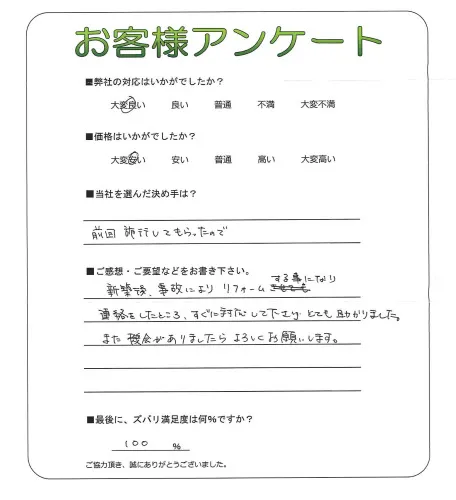 お客様アンケート
■弊社の対応はいかがでしたか？
大変良い 良い 普通 不満 大変不満
■価格はいかがでしたか？
大変安い 安い 普通 高い 大変高い
■当社を選んだ決め手は？
前回 施行してもらったので
■ご感想・ご要望などをお書き下さい。
する事になり
新築後、事故により リフォーム させても
連絡をしたところ、すぐに対応して下さり とても助かりました。
また機会がありましたら よろしくお願いします。
■最後に、ズバリ満足度は何%ですか？
100 %
ご協力頂き、誠にありがとうございました。